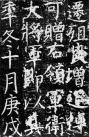 可贈右領軍衛
大將軍即以其
年冬十月庚戌